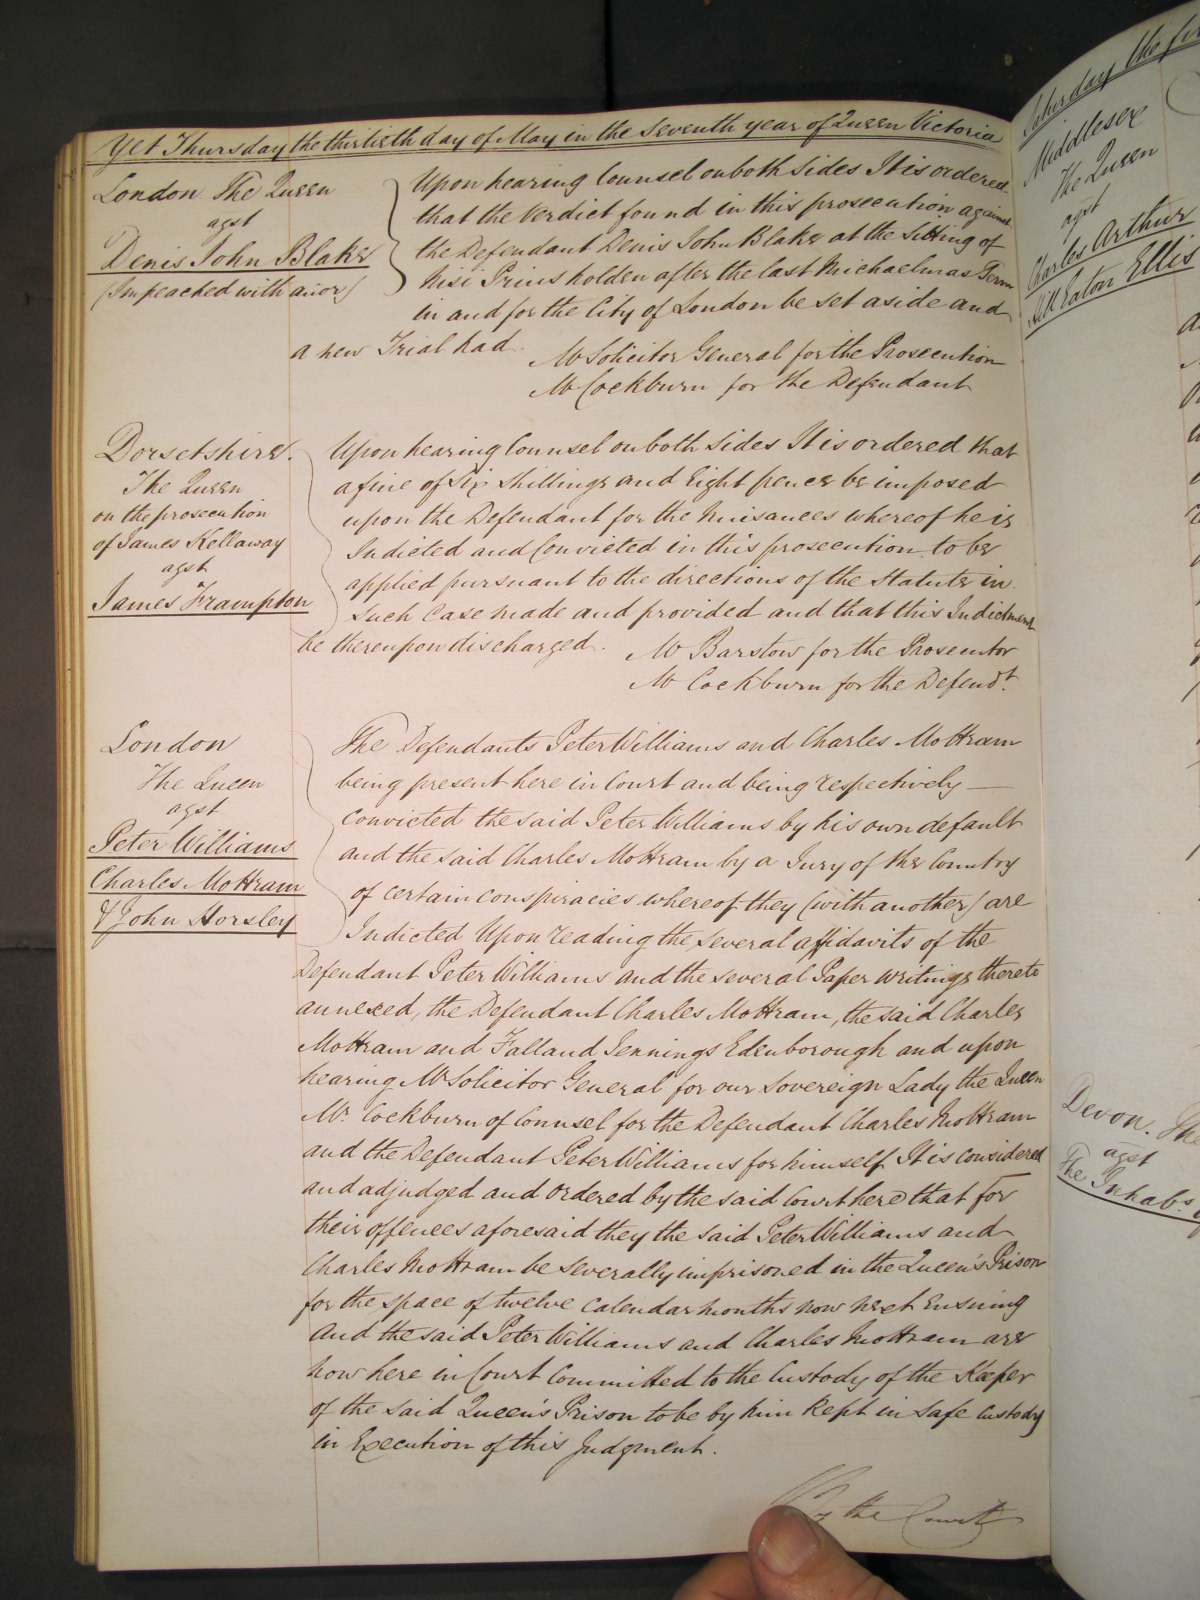 Yet Thursday the thirtieth day of May in the seventh year of Queen Victoria
London. The Queen
agst
Denis John Blake
(Impeached with anor)
Upon hearing Counsel on both sides It is ordered
that the Verdict found in this prosecution against
the Defendant Denis John Blake at the Sitting of
Nisi Prius holden after the last Michaelmas Term
in and for the City of London be set aside and
a new Trial had.
Mr Solicitor General for the Prosecution
Mr Cockburn for the Defendant
Dorsetshire.
The Queen
on the prosecution
of James Kellaway
agst
James Frampton
Upon hearing Counsel on both sides It is ordered that
a fine of Six Shillings and Eight pence be imposed
upon the Defendant for the Nuisances whereof he is
Indicted and Convicted in this prosecution to be
applied pursuant to the directions of the Statute in
such case made and provided and that this Indictment
be thereupon discharged.
Mr Barstow for the Prosecutor
Mr Cockburn for the Defendt.
London
The Queen
agst
Peter Williams
Charles Mottram
& John Horsley
The Defendants Peter Williams and Charles Mottram
being present here in Court and being respectively —
Convicted the said Peter Williams by his own default
and the said Charles Mottram by a Jury of the Country
of certain conspiracies whereof they (with another) are
Indicted Upon reading the several affidavits of the
Defendant Peter Williams and the several Paper writings thereto
annexed, the Defendant Charles Mottram, the said Charles
Mottram and Falland Jennings Edenborough and upon
hearing Mr Solicitor General for our Sovereign Lady the Queen
Mr. Cockburn of Counsel for the Defendant Charles Mottram
and the Defendant Peter Williams for himself It is considered
and adjudged and Ordered by the said Court here that for
their offences aforesaid they the said Peter Williams and
Charles Mottram be severally imprisoned in the Queen's Prison
for the space of twelve Calendar months now next ensuing
And the said Peter Williams and Charles Mottram are
now here in Court Committed to the Custody of the Keeper
of the said Queen's Prison to be by him kept in safe custody
in Execution of this Judgment.
By the Court
Saturday the
Middlesex
The Queen
agst
Charles Arthur
Eaton Ellis
Devon. The
agst
The Inhabs.